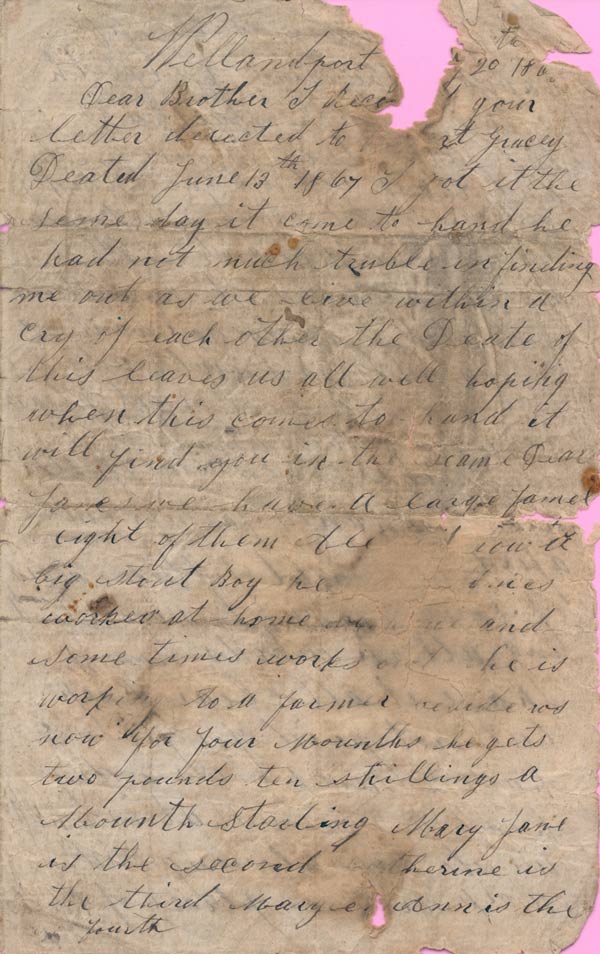 Wellandport 20th 18
Dear Brother I your
letter derected to Gracey
Deated June 13th 1867 I got it the
seme day it come to hand he
had not much truble in finding
me out as we live within a
cry of each other the Deate of
this leaves us all well hoping
when this comes to hand it
will find you in the same Dear
James we have a large famel
eight of them
big stout Boy he
worked at home and
some times works he is
to a farmer beside us
now for four Mounths he gets
two pounds ten shillings a
Mounth Starling Mary Jane
is the second therine is
the third Mary Ann is the
fourth